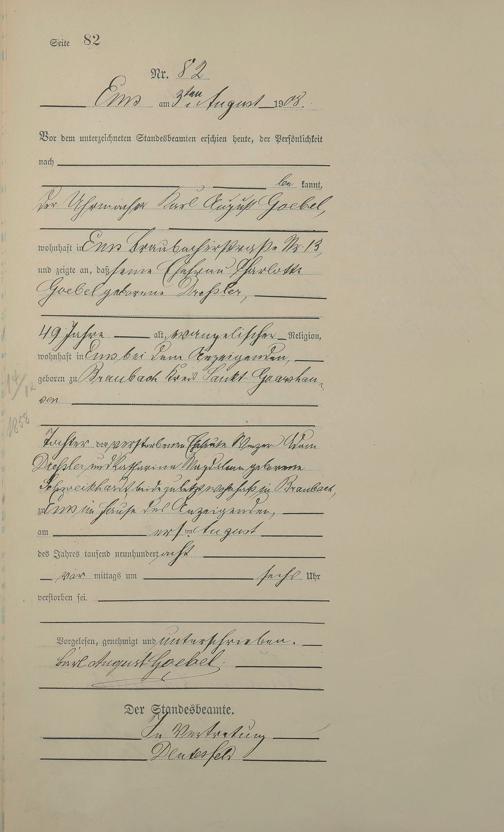 Seite 82
Nr. 82
Ems am 3ten August 1908.
Vor dem unterzeichneten Standesbeamten erschien heute, der Persönlichkeit
nach
be kannt,
der Uhrmacher Karl August Goebel,
wohnhaft in Ems Braubacherstraße Nr 13,
und zeigte an, daß seine Ehefrau Charlotte
Goebel geborene
49 Jahre alt, evangelischer Religion,
wohnhaft in Ems bei dem Anzeigenden,
geboren zu Braubach Kreis Sankt Goarshau-
sen
14/12
1858
Tochter der verstorbenen Eheleute
und Katharine geborene
beide zuletzt wohnhaft in Braubach,
zu Ems im Hause des Anzeigenden,
am ersten August
des Jahres tausend neunhundert acht
vor mittags um sechs Uhr
verstorben sei.
Vorgelesen, genehmigt und unterschrieben.
Karl August Goebel
Der Standesbeamte.
In Vertretung